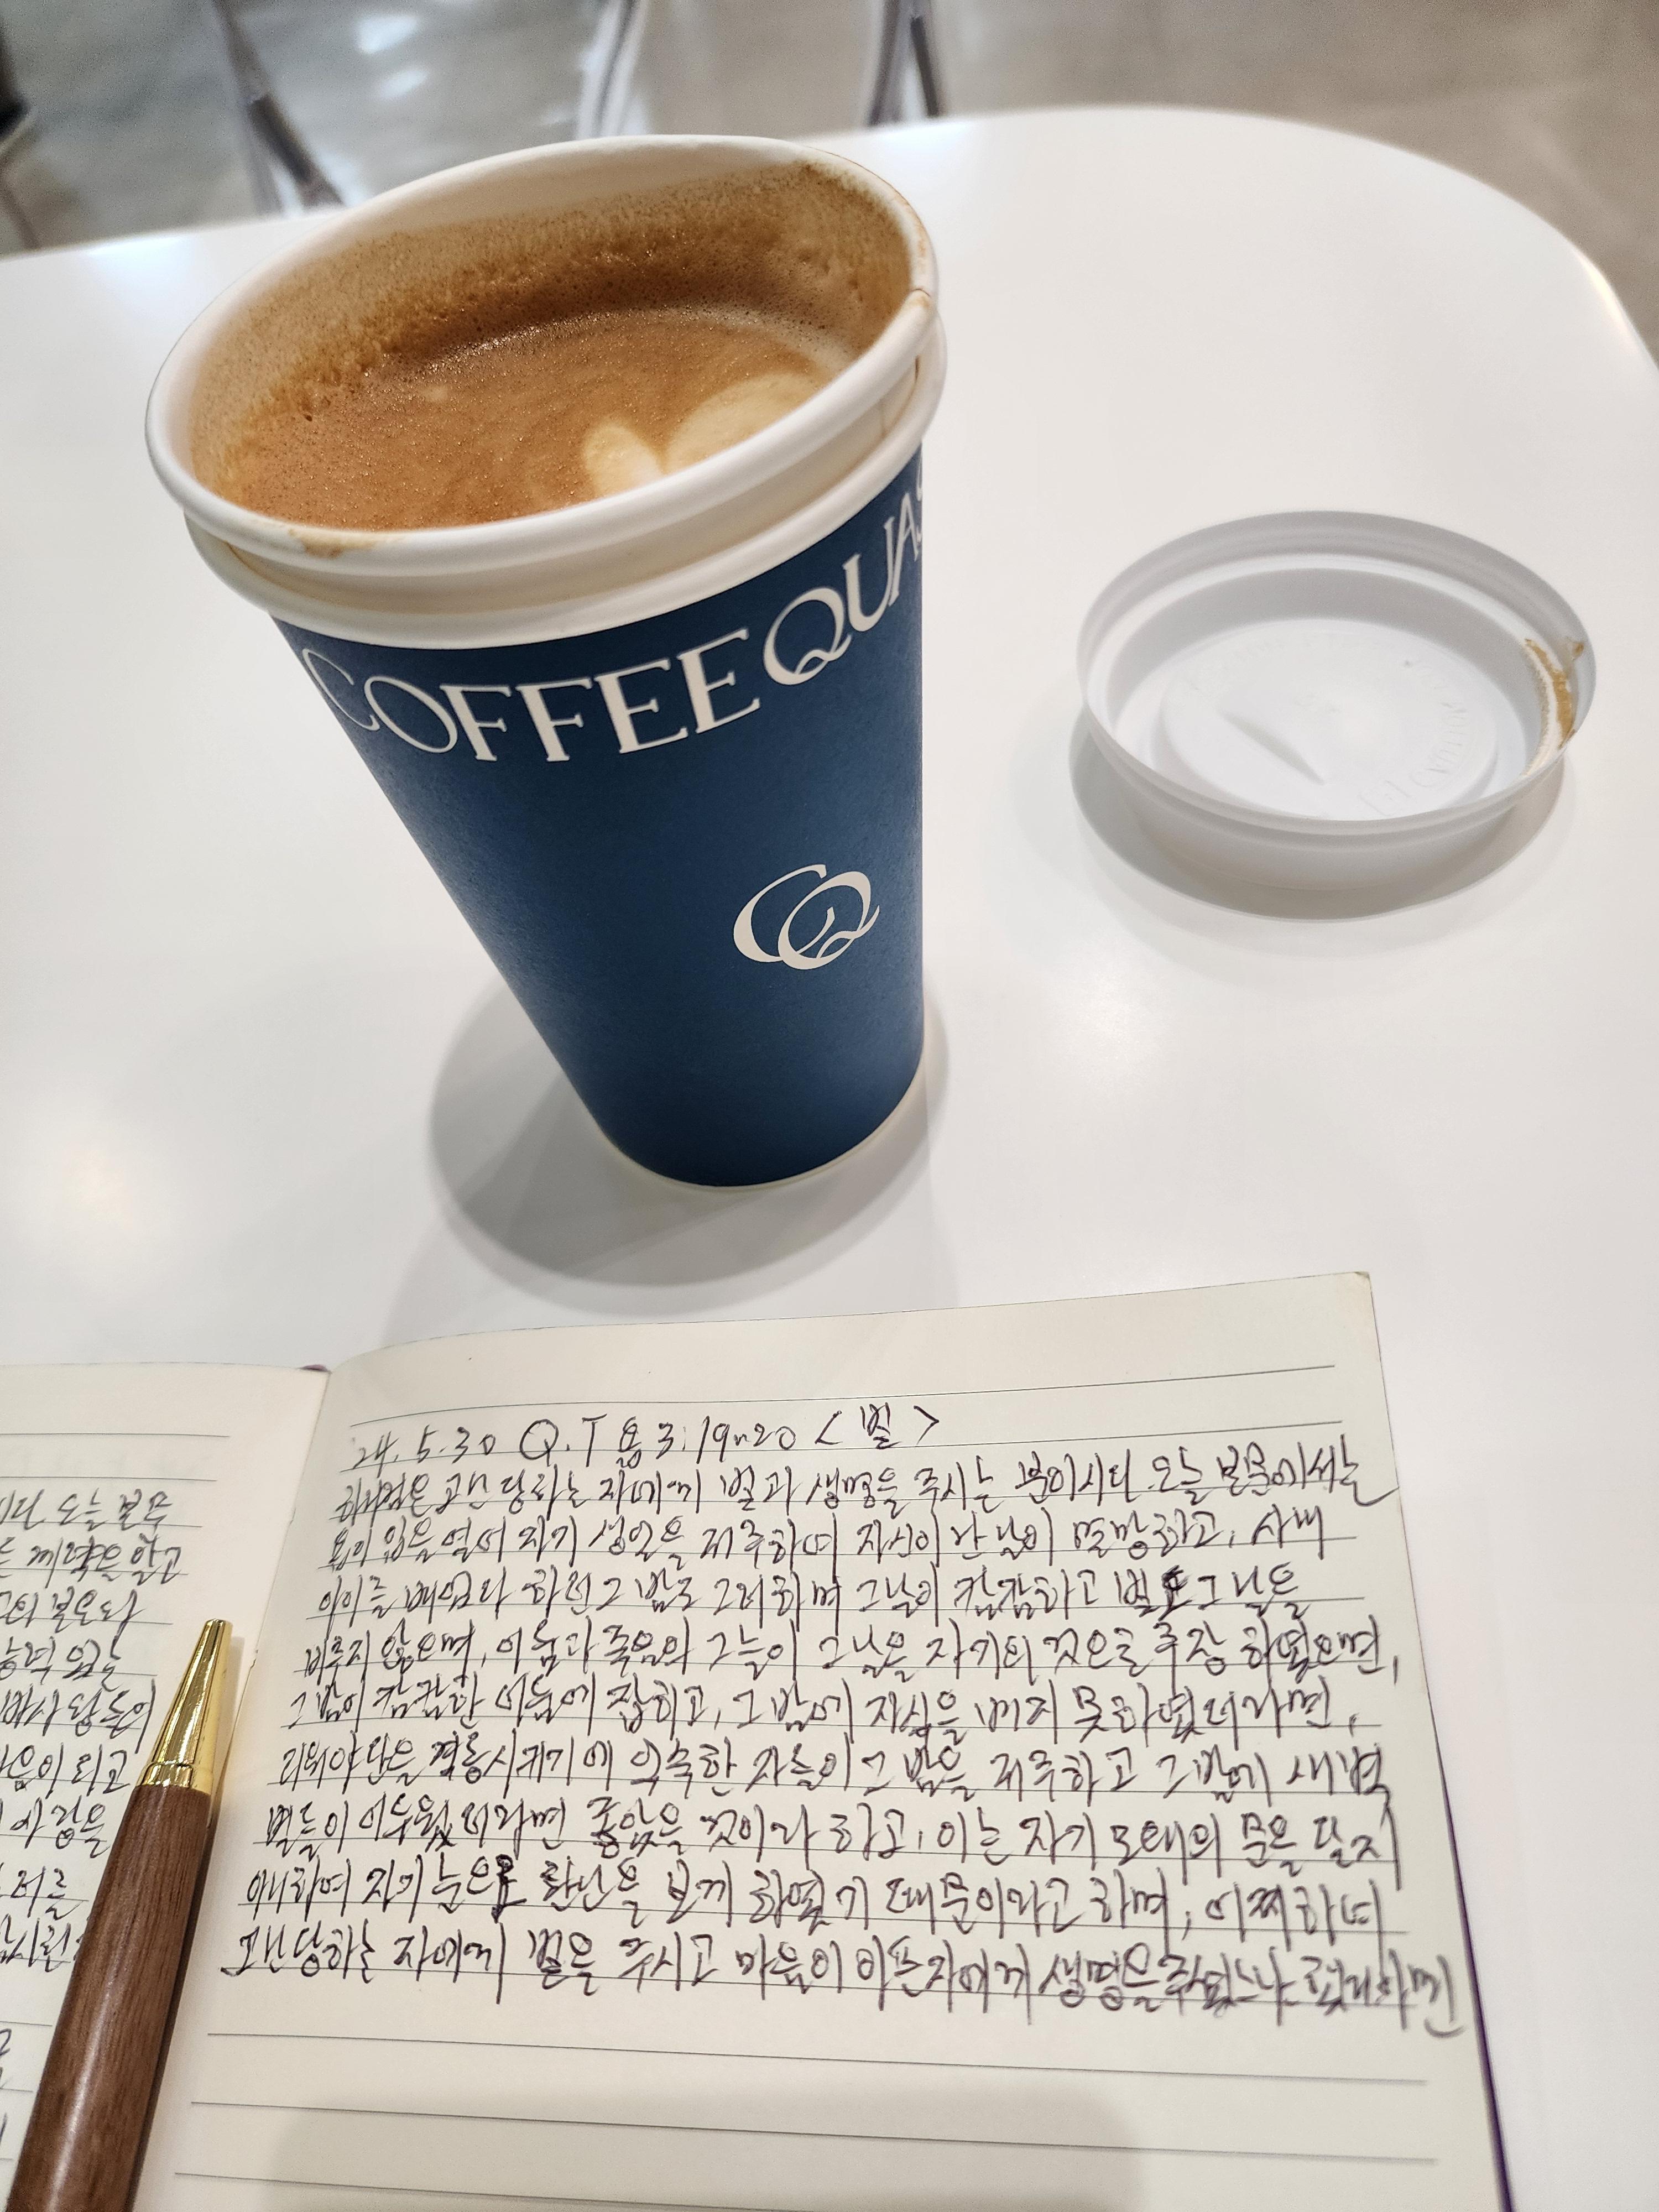 COFFEE QUAS
CQ
24. 5. 30 Q.T 욥 3:19~20 <빛>
하나님은 고난 당하는 자에게 빛과 생명을 주시는 분이시다 오늘 본문에서는
욥이 입을 열어 자기 생일을 저주하며 자신이 난 날이 멸망하고, 사내
아이를 배었다 하던 그 밤도 그러하며 그날이 캄캄하고 빛도 그날을
비추지 않으며, 어둠과 죽음의 그늘이 그날을 자기의 것으로 주장 하였으면,
그 밤이 캄캄한 어둠에 잡히고, 그 밤에 자식을 배지 못하였더라면,
리워야단을 격동시키기에 익숙한 자들이 그 밤을 저주하고 그 밤에 새벽
별들이 어두웠더라면 좋았을 것이라 하고, 이는 자기 모태의 문을 닫지
아니하여 자기 눈으로 환난을 보게 하였기 때문이라고 하며, 어찌하여
고난 당하는 자에게 빛을 주시고 마음이 아픈자에게 생명을 주셨느냐
다 오늘 본문
계획을 알고